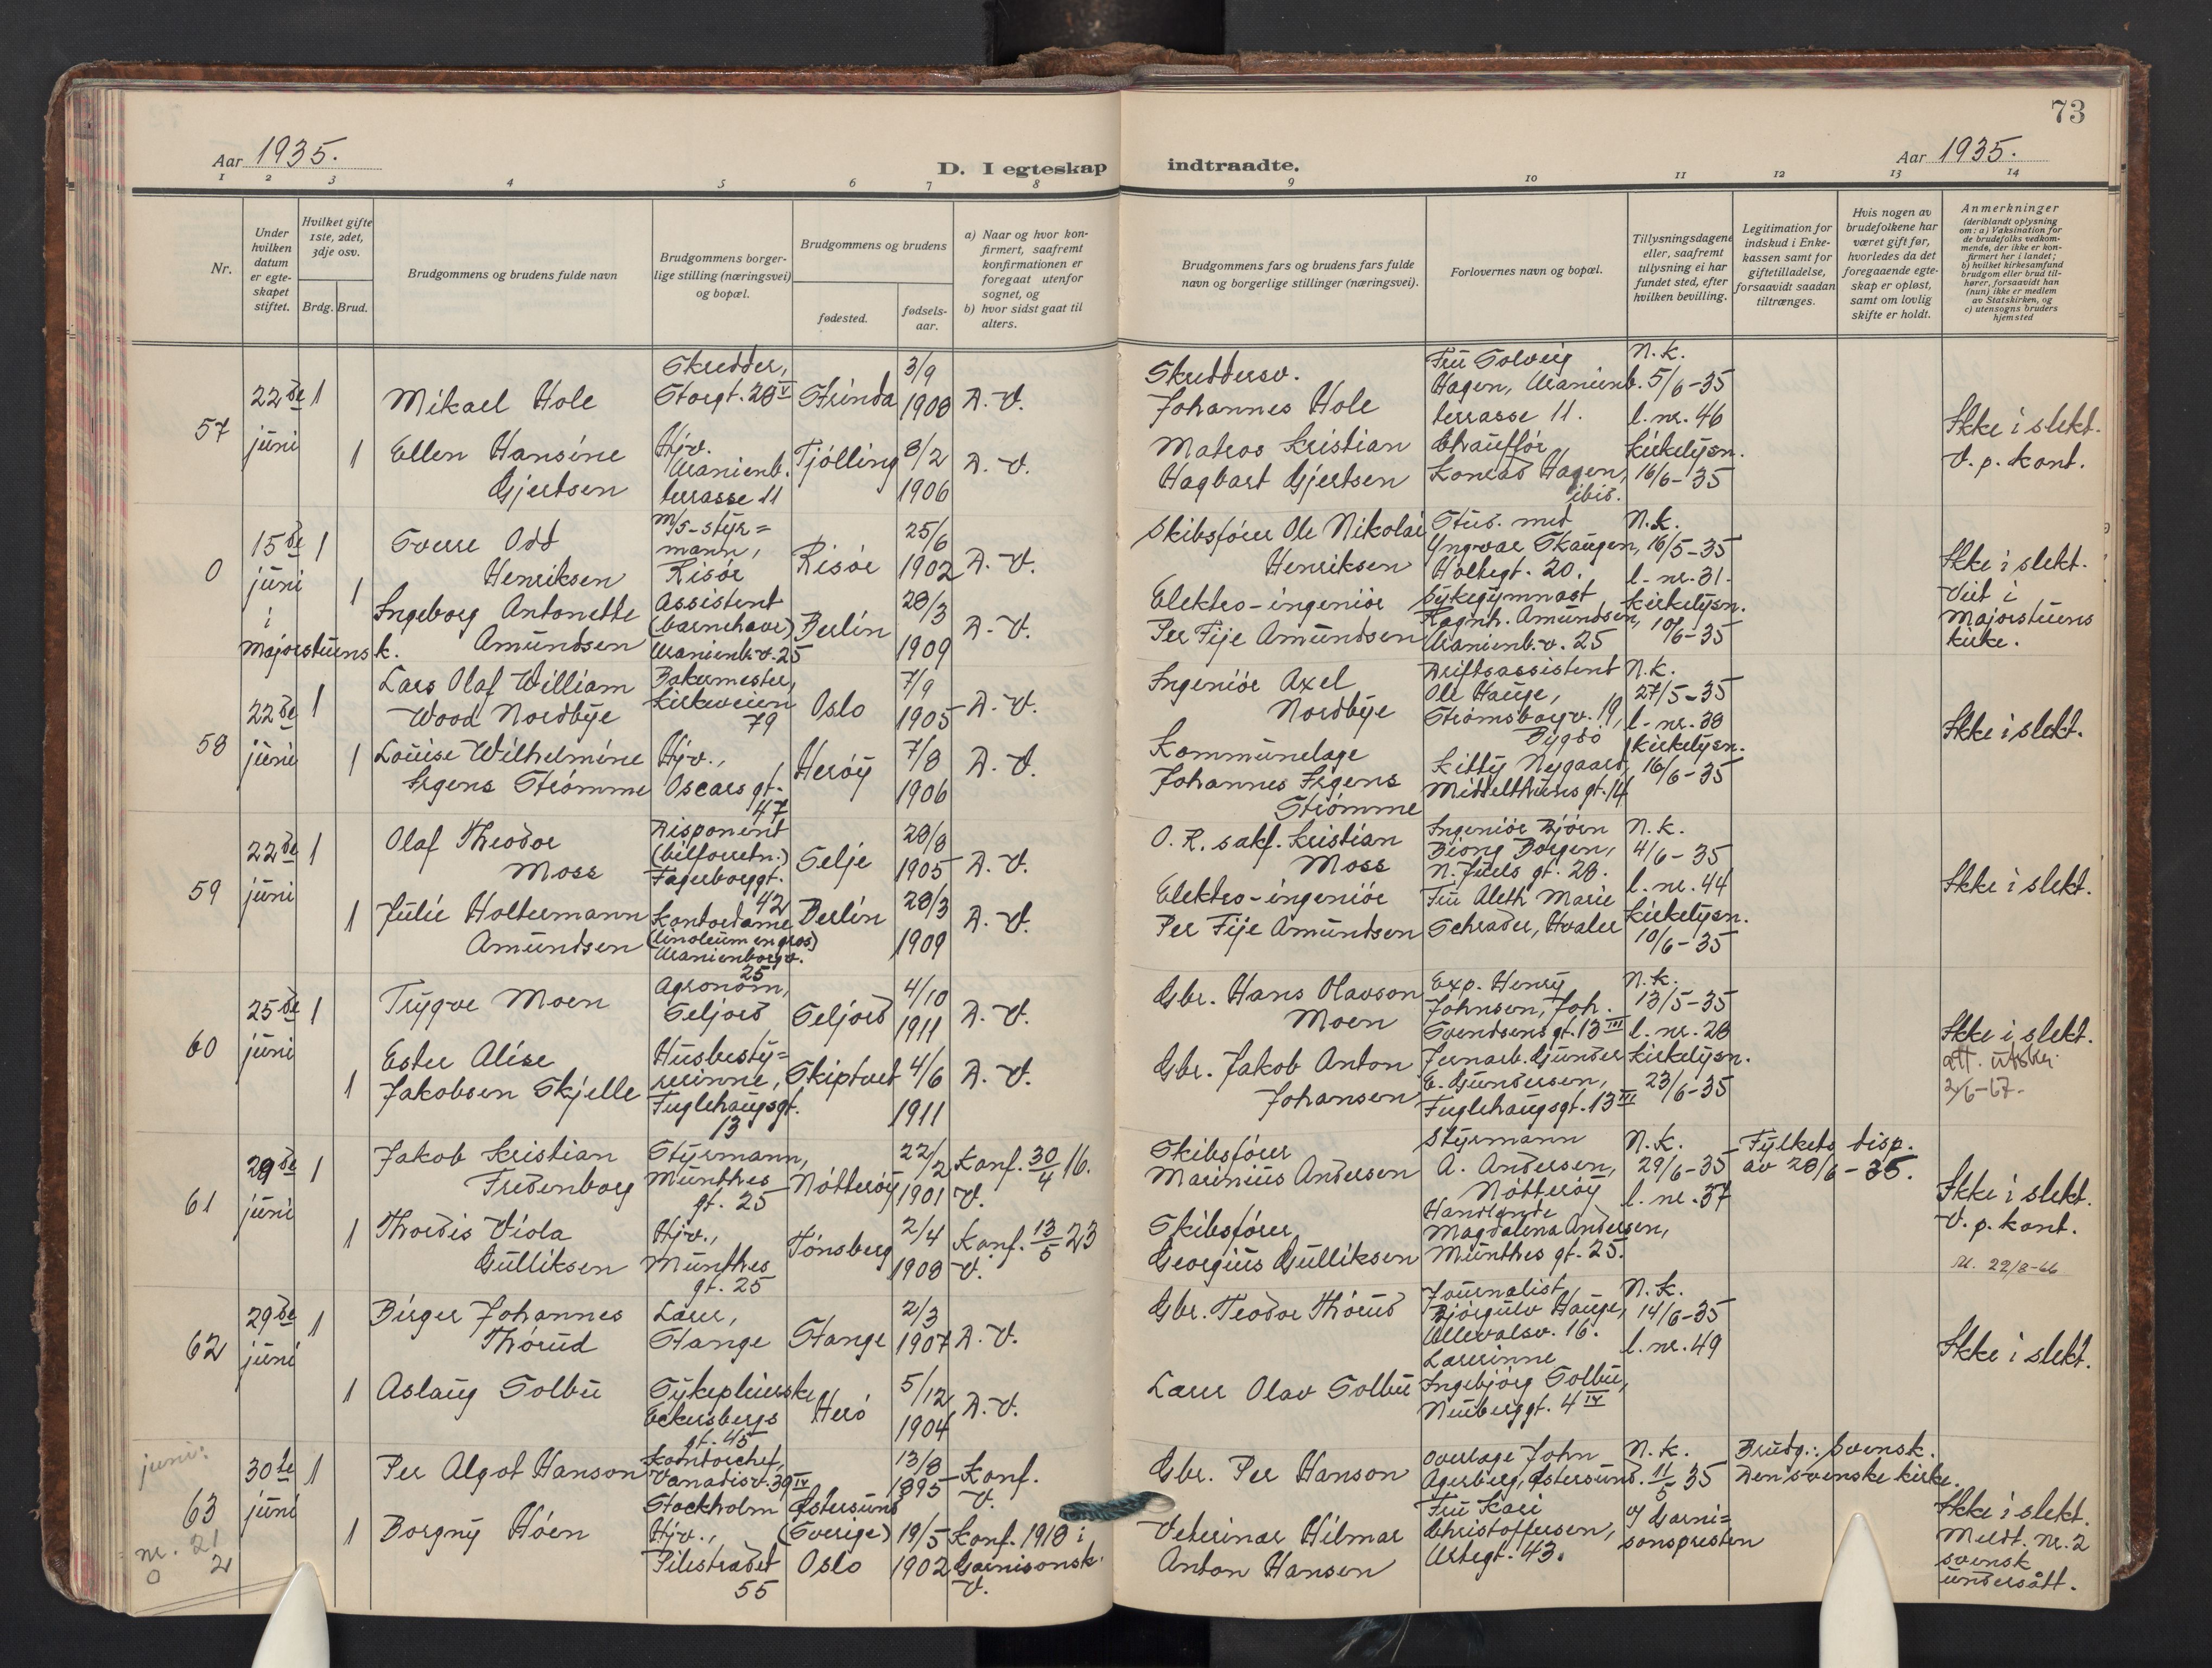 73
Aar 1935.
D. I egteskap indtraadte.
Aar 1935.
1 2 3 4 5 6 7 8 9 10 11 12 13 14
Nr.
Under hvilken datum er egteskapet stiftet.
Hvilket gifte 1ste, 2det, 3dje osv.
Brdg. Brud.
Brudgommens og brudens fulde navn
Brudgommens borgerlige stilling (næringsvei) og bopæl.
Brudgommens og brudens
fødested.
fødselsaar.
a) Naar og hvor konfirmert, saafremt konfirmationen er foregaat utenfor sognet, og
b) hvor sidst gaat til alters.
Brudgommens fars og brudens fars fulde navn og borgerlige stillinger (næringsvei).
Forlovernes navn og bopæl.
Tillysningsdagene eller, saafremt tillysning ei har fundet sted, efter hvilken bevilling.
Legitimation for indskud i Enkekassen samt for giftetilladelse, forsaavidt saadan tiltrænges.
Hvis nogen av brudefolkene har været gift før, hvorledes da det foregaaende egteskap er opløst, samt om lovlig skifte er holdt.
Anmerkninger
(deriblandt oplysning om: a) Vaksination for de brudefolks vedkommende, der ikke er konfirmert her i landet;
b) hvilket kirkesamfund brudgom eller brud tilhører, forsaavidt han (hun) ikke er medlem av Statskirken, og
c) utensogns bruders hjemsted
57
22de juni
1
Mikael Hole
Skredder, Storgt. 28 V
Strinda
3/9 1908
D. V.
Skreddersv. Johannes Hole
Fru Solveig Hagen, Uranienb. terrasse 11.
N.k. 5/6-35 l. nr. 46
1
Ellen Hansine Gjertsen
Hjv. Uranienb. terrasse 11
Tjölling
8/2 1906
D. V.
Matros Kristian Hagbart Gjertsen
Chauffør Konrad Hagen, ibid.
Kirkelysn. 16/6-35
Ikke i slekt. V. p. kont.
0
15de juni i Majorstuens k.
1
Sverre Odd Henriksen
M/S-styrmann, Risör
Risör
25/6 1902
D. V.
Skibsförer Ole Nikolai Henriksen
Stud. med Yngvar Skaugen, Holtegt. 20.
N.k. 16/5-35 l. nr. 31.
1
Ingeborg Antonette Amundsen
Assistent (barnehave) Uranienb.v. 25
Berlin
28/3 1909
D. V.
Elektro-ingeniör Per Fije Amundsen
Sykegymnast Ragnh. Amundsen, Uranienb.v. 25
Kirkelysn. 10/6-35
Ikke i slekt. Viet i Majorstuens kirke.
58
22de juni
1
Lars Olaf William Wood Nordbye
Bakermester, Kirkeveien 79
Oslo
7/9 1905
D. V.
Ingeniör Axel Nordbye
Driftsassistent Ole Hauge, Strömsborgv. 19, Bygdö
N.k. 27/5-35 l. nr. 38
1
Louise Wilhelmine Irgens Strömme
Hjv., Oscarsgt. 47
Heröy
7/8 1906
D. V.
Kommunelæge Johannes Irgens Strömme
Kitty Nygaard, Middelthunsgt. 14
Kirkelysn. 16/6-35
Ikke i slekt.
59
22de juni
1
Olaf Theodor Moss
Disponent (bilforretn.) Fagerborggt. 42
Selje
28/8 1905
D. V.
O. R. sakf. Kristian Moss
Ingeniör Björn Biong Borgen, N. Juels gt. 28.
N.k. 4/6-35 l. nr. 44
1
Julie Holtermann Amundsen
Kontordame (linoleum engros) Uranienborgv. 25
Berlin
28/3 1909
D. V.
Elektro-ingeniör Per Fije Amundsen
Fru Aleth Marie Schrader, Hvaler
Kirkelysn. 10/6-35
Ikke i slekt.
60
25de juni
1
Trygve Moen
Agronom, Seljord
Seljord
4/10 1911
D. V.
Gbr. Hans Olavson Moen
Exp. Henry Johnsen, Joh. Svendsensgt. 13 III
N.k. 13/5-35 l. nr. 28
1
Ester Alise Jakobsen Skjelle
Husbestyrerinne, Fuglehaugsgt. 13
Skiptvet
4/6 1911
D. V.
Gbr. Jakob Anton Johansen
Jernarb. Gunder E. Gundersen, Fuglehaugsgt. 13 III
Kirkelysn. 23/6-35
Ikke i slekt.
att. utskr. 2/6-67.
61
29de juni
1
Jakob Kristian Fredenborg
Styrmann, Munthes gt. 25
Nötteröy
22/2 1901
Konf. 30/4 16. V.
Skibsförer Marinius Andersen
Styrmann A. Andersen, Nötteröy
N.k. 29/6-35 l. nr. 37
Fylkets disp. av 28/6-35.
1
Thordis Viola Gulliksen
Hjv., Munthes gt. 25
Tönsberg
2/4 1908
Konf. 13/5 23 V.
Skibsförer Georgius Gulliksen
Handlende Magdalena Andersen, Munthes gt. 25.
Ikke i slekt. V. p. kont.
22/8-66
62
29de juni
1
Birger Johannes Thörud
Lærer, Stange
Stange
2/3 1907
D. V.
Gbr. Teodor Thörud
Journalist Björgulv Hauge, Ullevålsv. 16.
N.k. 14/6-35 l. nr. 49
1
Aslaug Solbu
Sykepleierske Eckersbergs gt. 45
Herö
5/12 1904
D. V.
Lærer Olav Solbu
Lærerinne Ingebjörg Solbu, Neuberggt. 4 IV
Ikke i slekt.
juni:
63
nr. 21
0 2
30te juni
1
Per Algot Hanson
Kontorchef, Vanadisv. 39 IV Stockholm
Östersund (Sverige)
13/8 1895
Konf. V.
Gbr. Per Hanson
Overlæge John Agerberg, Östersund.
N.k. 11/5 35
Brudg.: Svensk. Den svenske kirke.
1
Borgny Höen
Hjv., Pilestrædet 55
Oslo
19/5 1902
Konf. 1918 i Garnisonsk. V.
Veterinær Hilmar Anton Hansen
Fru Kari Christoffersen, Urtegt. 43.
v/ Garnisonspresten
Ikke i slekt. Meldt. nr. 2 svensk undersått.